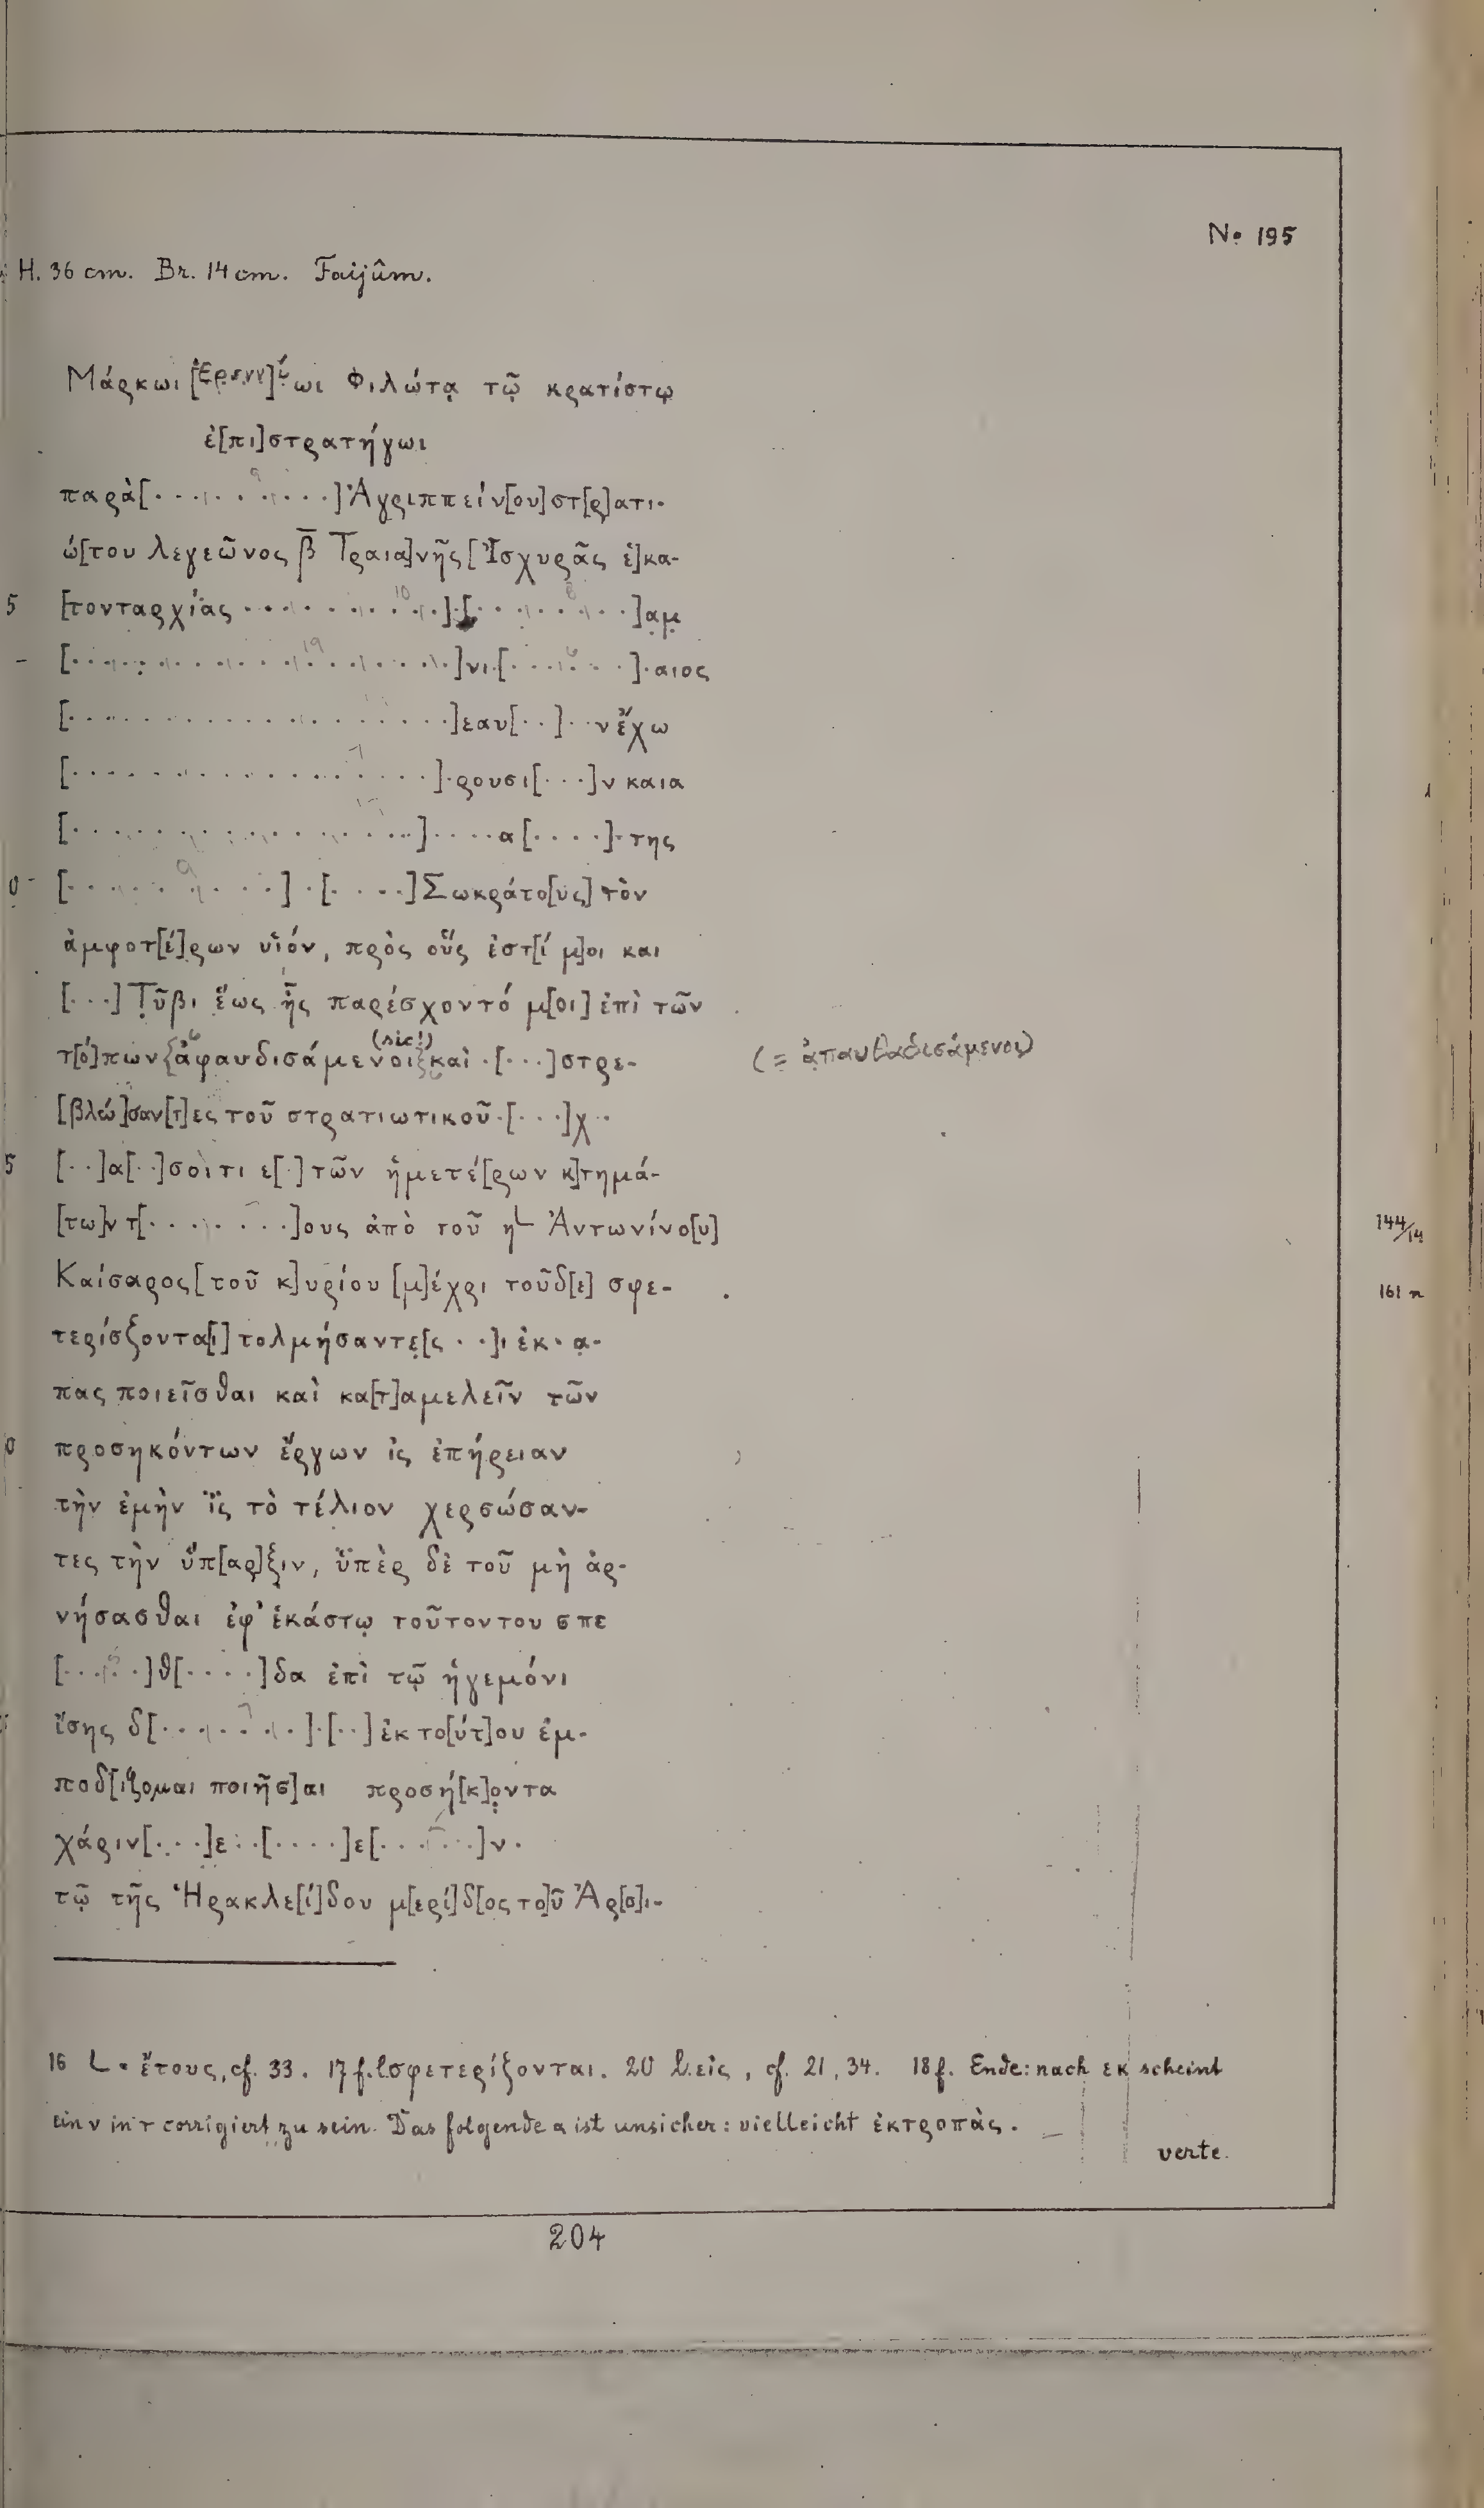 No 195
H. 36 cm. Br. 14 cm. Faijûm.
Μάρκωι [Ἑρενν]ίωι Φιλώτᾳ τῷ κρατίστῳ
ἐ[πι]στρατήγωι
παρὰ[· · · · · · · · · ·] Ἀγριππείν[ου] στ[ρ]ατι-
ώ[του λεγεῶνος β̄ Τραια]νῆς [Ἰσχυρᾶς ἑ]κα-
5 [τονταρχίας · · · · · · · · · ·]·[· · · · · · · ·]αμ
[· · · · · · · · · · · · · · · · · · ·]νι·[· · · · · ·]·αιος
[· · · · · · · · · · · · · · · · · · ·]εαυ[· ·]· ·ν ἔχω
[· · · · · · · · · · · · · · · · ·]·ρουσι[· · ·]ν καια
[· · · · · · · · · · · · · · · · ·]· · · ·α[· · · ·]·της
0 [· · · · · · · · ·] · [· · · ·] Σωκράτο[υς] τὸν
ἀμφοτ[έ]ρων υἱόν, πρὸς οὓς ἐστ[ί μ]οι και
[· · ·] Τῦβι ἕως ἧς παρέσχοντό μ[οι] ἐπὶ τῶν
τ[ό]πων {ἀφαυδισάμενοι} (sic!) καὶ ·[· · ·]στρε- (= ἀπαυθαδισάμενοι)
[βλώ]σαν[τ]ες τοῦ στρατιωτικοῦ·[· · ·]χ··
5 [· ·]α[· ·]σοιτι ε[·] τῶν ἡμετέ[ρων κ]τημά-
[τω]ν τ[· · · · · · · ·]ους ἀπὸ τοῦ η└ Ἀντωνίνο[υ] 144/14
Καίσαρος [τοῦ κ]υρίου [μ]έχρι τοῦδ[ε] σφε- 161 n
τερίσζοντα[ι] τολμήσαντε[ς · ·]ι ἐκ·α-
πας ποιεῖσθαι καὶ κα[τ]αμελεῖν τῶν
0 προσηκόντων ἔργων ἰς ἐπήρειαν
τὴν ἐμὴν ἲς τὸ τέλιον χερσώσαν-
τες τὴν ὕπ[αρ]ξιν, ὑπὲρ δὲ τοῦ μὴ ἀρ-
νήσασθαι ἐφ' ἑκάστῳ τοῦτοντου σπε
[· · · · ·]θ[· · · ·]δα ἐπὶ τῷ ἡγεμόνι
ἴσης δ[· · · · · · ·]·[· ·] ἐκ το[ύτ]ου ἐμ-
ποδ[ίζομαι ποιῆσ]αι προσή[κ]οντα
χάριν[· · ·]ε··[· · · ·]ε[· · · · · ·]ν·
τῷ τῆς Ἡρακλε[ί]δου μ[ερί]δ[ος το]ῦ Ἀρ[σ]ι-
16 └ = ἔτους, cf. 33. 17 f. l. σφετερίζονται. 20 l. εἰς, cf. 21, 34. 18 f. Ende: nach εκ scheint
ein ν in τ corrigiert zu sein. Das folgende α ist unsicher: vielleicht ἐκτροπὰς.
verte.
204